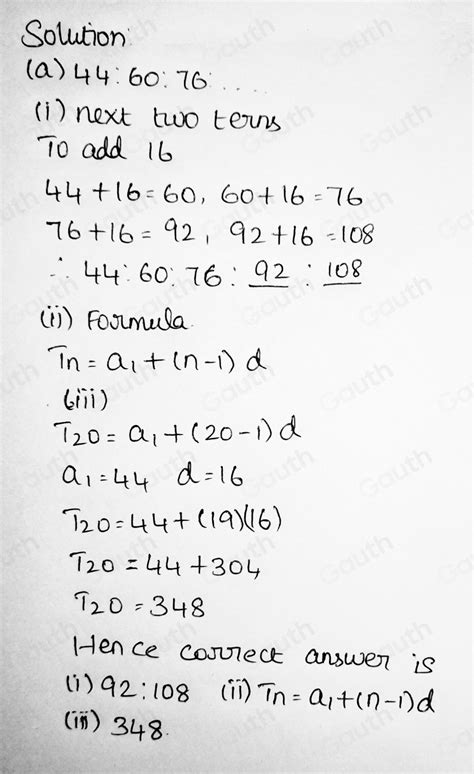 Solution:
(a) 44:60:76: ....
(i) next two terms
To add 16
44+16=60, 60+16=76
76+16= 92, 92+16=108
∴ 44:60:76: 92 : 108
(ii) Formula.
Tn = a1 + (n-1) d
(iii)
T20 = a1 + (20-1) d
a1 = 44 d=16
T20 = 44 + (19)(16)
T20 = 44 + 304
T20 = 348
Hence correct answer is
(i) 92:108 (ii) Tn = a1 + (n-1) d
(iii) 348.